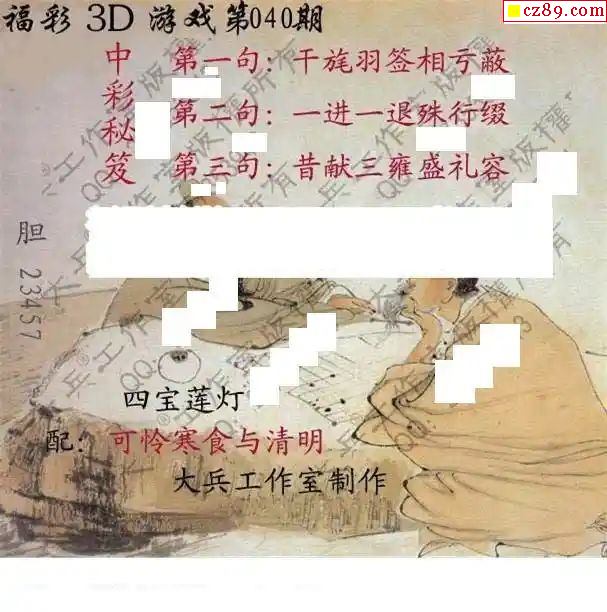 cz89.com
福彩 3D 游戏第040期
中彩秘笈
第一句：干旄羽签相亏蔽
第二句：一进一退殊行缀
第三句：昔献三雍盛礼容
胆 23457
四宝莲灯
配：可怜寒食与清明
大兵工作室制作